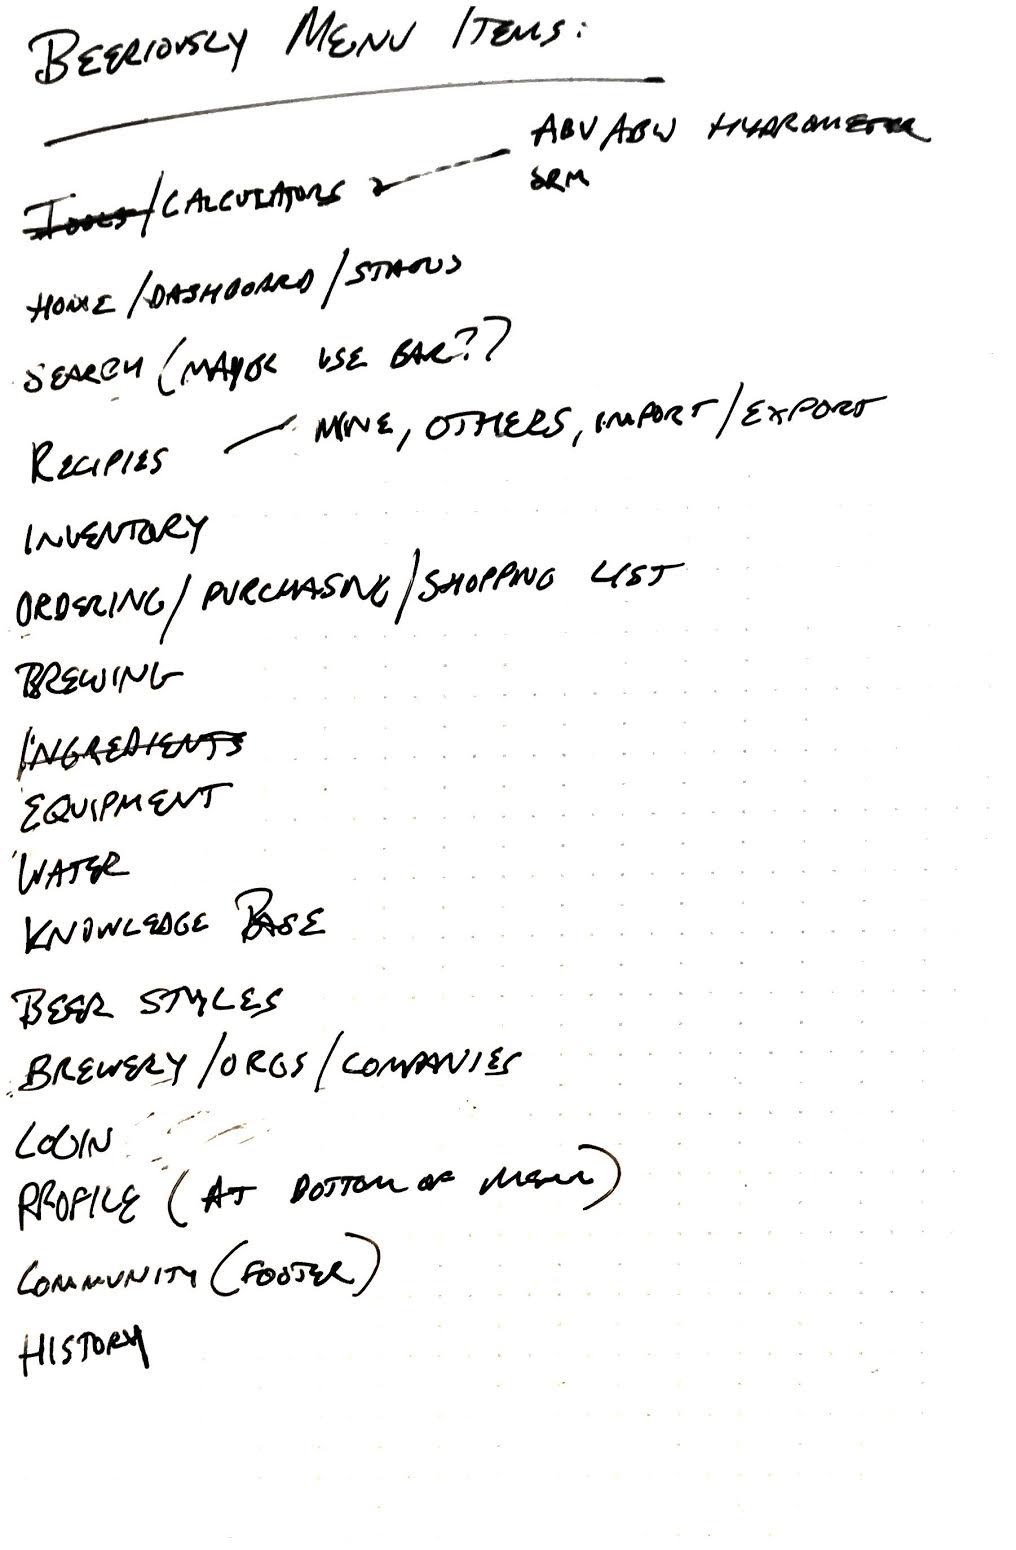 BEERIOUSLY MENU ITEMS:
ABV/ABW HYDROMETER
TOOLS/CALCULATORS
SRM
HOME/DASHBOARD/STATUS
SEARCH (MAYBE USE BAR??
RECIPIES — MINE, OTHERS, IMPORT/EXPORT
INVENTORY
ORDERING/PURCHASING/SHOPPING LIST
BREWING
INGREDIENTS
EQUIPMENT
WATER
KNOWLEDGE BASE
BEER STYLES
BREWERY/ORGS/COMPANIES
LOGIN
PROFILE (AT BOTTOM OF MENU)
COMMUNITY (FOOTER)
HISTORY